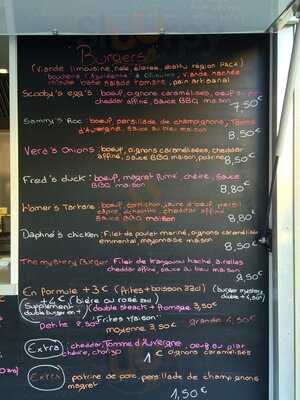 Burgers
(viande limousine, née, élevée, abattu région PACA)
boucherie, viande hachée
minute, base salade romane, pain artisanal
Scooby's egg's : boeuf, oignons caramélisés, oeuf au plat
cheddar affiné, sauce BBQ maison
7,50€
Sammy's Roc : boeuf, persillade de champignons, Tomme
d'Auvergne, sauce au bleu maison
8,50€
Vera's Onions : boeuf, oignons caramélisés, cheddar
affiné, sauce BBQ maison, poitrine
8,50€
Fred's duck : boeuf, magret fumé, chèvre, sauce
BBQ maison
8,80€
Homer's Tartare : boeuf, cornichon, jaune d'oeuf, persil
sauce BBQ maison
8,80€
Daphné's chicken : Filet de poulet mariné, oignons caramélisés
emmental, mayonnaise maison
8,50€
The mystery Burger : Filet de kangourou haché, airelles
cheddar affiné, sauce au bleu maison
8,50€
En Formule + 3 € (frites + boisson 33cl) (burger mystery
double + 4,50€)
+ 4 € (bière ou rosé)
Supplément
double burger en + : double steack + fromage 3,50€
Frites maison
petite 2,50€
moyenne 3,50€
grande 4,50€
Extra : cheddar, Tomme d'Auvergne, oeuf au plat
chèvre, chorizo
1€ oignons caramélisés
Extra : poitrine de porc, persillade de champignons
magret
1,50€